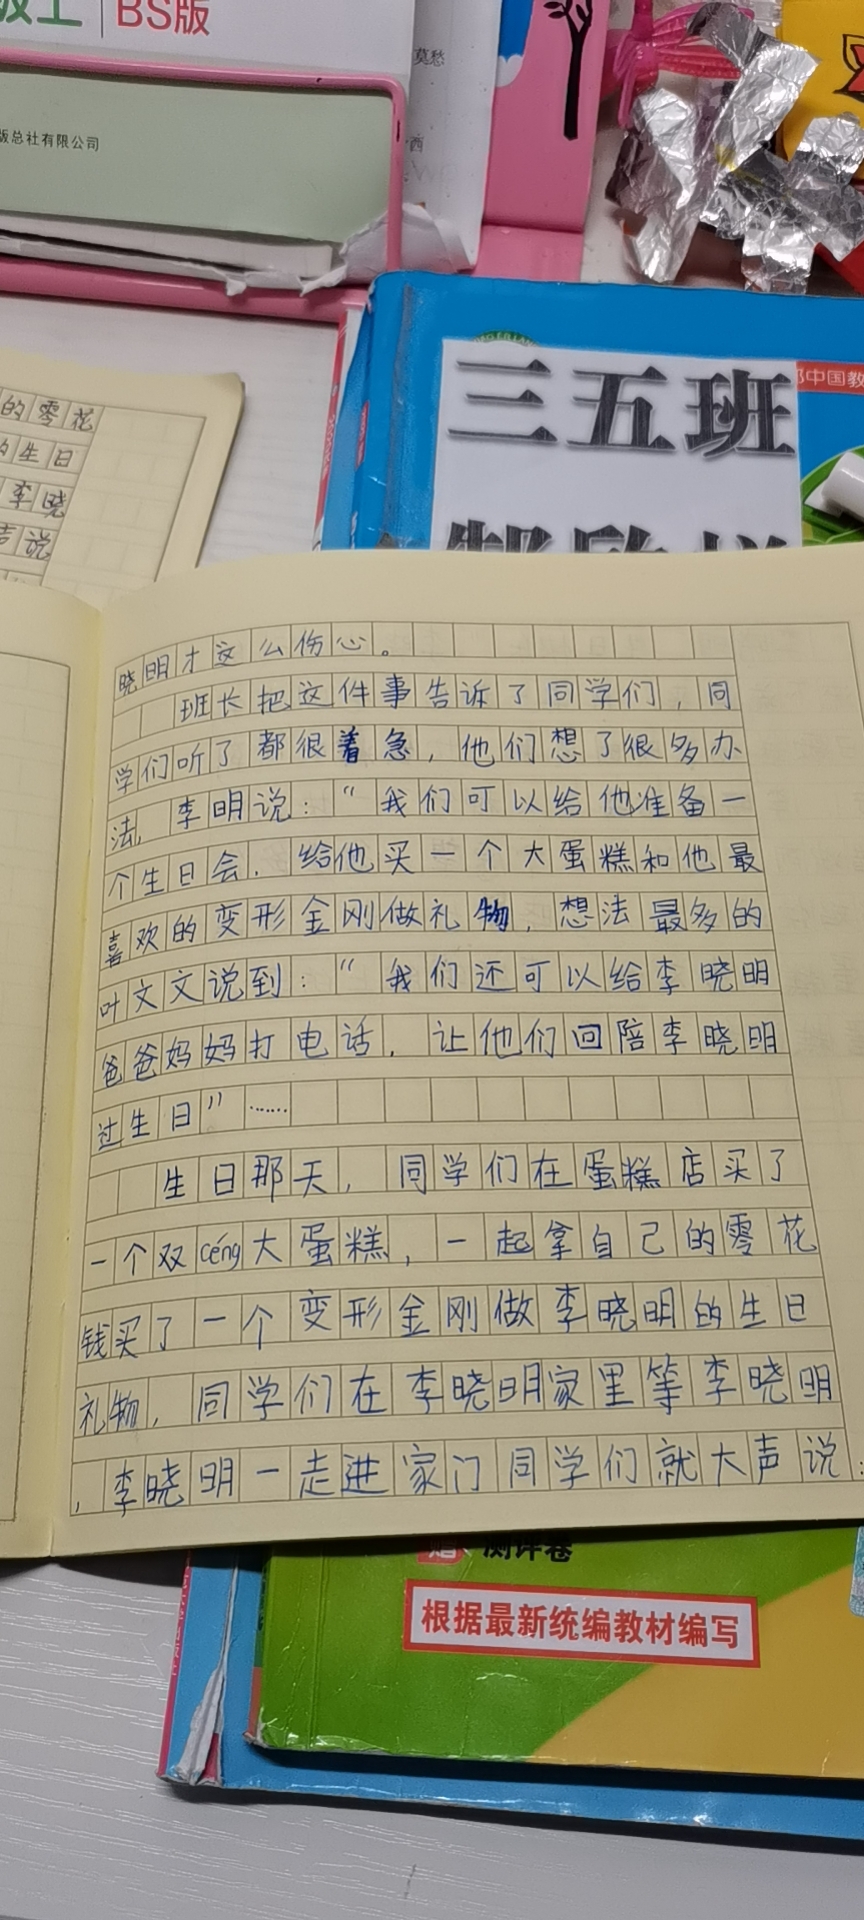 BS版
莫愁
版总社有限公司
西
三五班
中国教
的零花
的生日
李晓
声说
晓明才这么伤心。
班长把这件事告诉了同学们，同
学们听了都很着急，他们想了很多办
法，李明说：“我们可以给他准备一
个生日会，给他买一个大蛋糕和他最
喜欢的变形金刚做礼物，想法最多的
叶文文说到：“我们还可以给李晓明
爸爸妈妈打电话，让他们回陪李晓明
过生日”……
生日那天，同学们在蛋糕店买了
一个双céng大蛋糕，一起拿自己的零花
钱买了一个变形金刚做李晓明的生日
礼物，同学们在李晓明家里等李晓明
，李晓明一走进家门同学们就大声说：
测评卷
根据最新统编教材编写